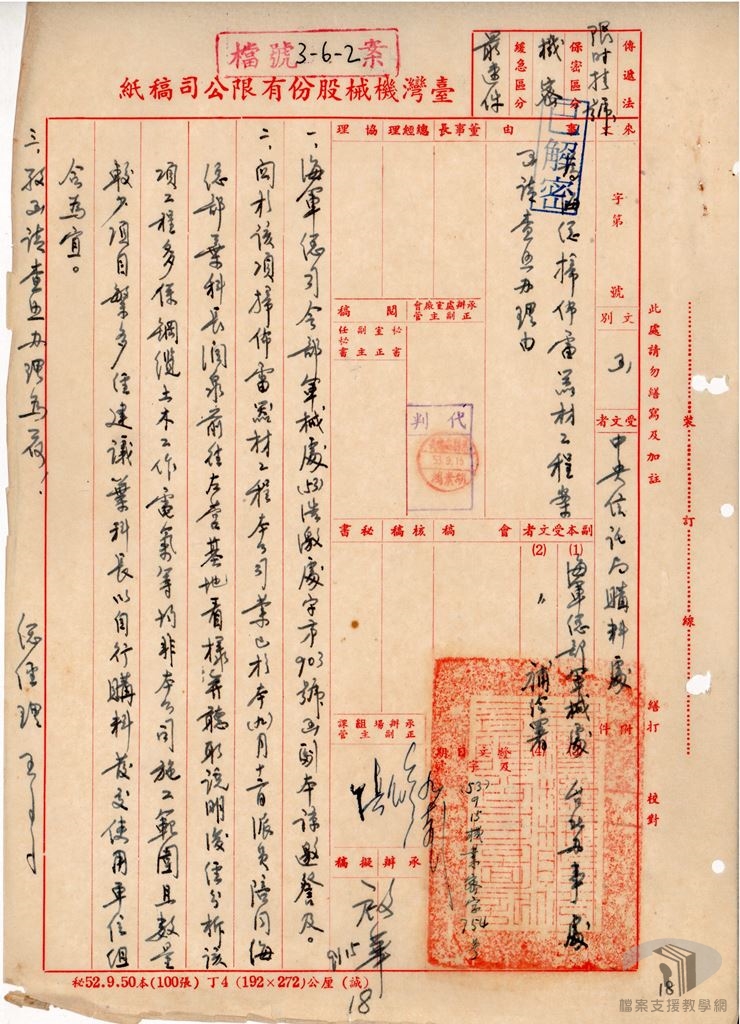 檔號3-6-2案
臺灣機械股份有限公司稿紙
傳遞法
限時掛號
保密區分
機密
緩急區分
最速件
已解密
來文
字第
號
文別
函
受文者
中央信託局購料處
副本受文者
(1)海軍總部軍械處
台北辦事處
(2)〃補給署
(4)
附件
事由
海總掃佈雷器材工程案
函請查照辦理由
董事長
總經理
協理
承辦處室廠會
正副主管
閱稿
秘書室正副主任秘書
代判
53.9.15
會稿
核稿
秘書
發文日期及字號
(53)9.15機業密字754號
承辦場組課
正副主管
承辦擬稿
啟華
9/15
18
一、海軍總司令部軍械處(53)浩激處字第903號函副本諒邀詧及。
二、關於該項掃佈雷器材工程本公司業已於本(九)月十二日派員陪同海
總部葉科長潤泉前往左營基地看樣並聽取說明後經分析該
項工程多係鋼纜土木工作電氣等均非本公司施工範圍且數量
較少項目繁多經建議葉科長以自行購料發交使用單位組
合為宜。
三、敬函請查照辦理為荷!
總經理 王
此處請勿繕寫及加註
裝
訂
線
繕打
校對
秘52.9.50本(100張) 丁4 (192×272)公厘 (誠)
18
檔案支援教學網